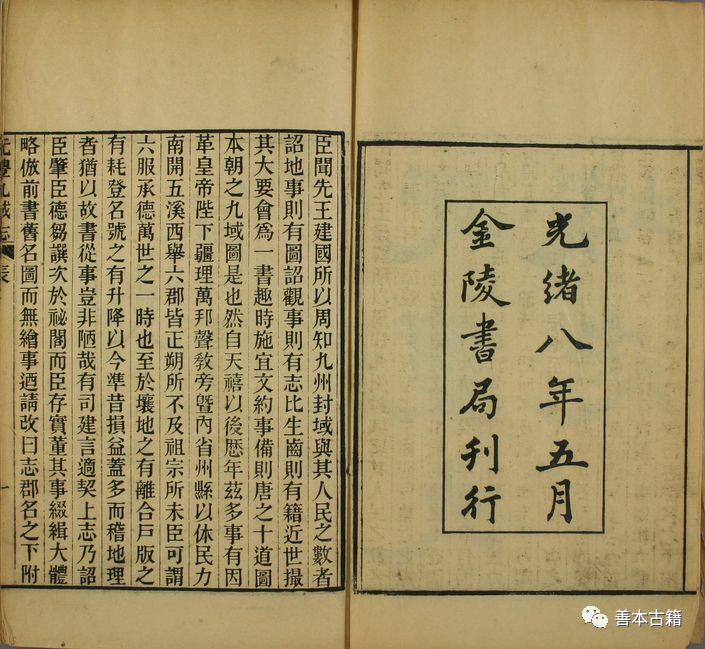 光緒八年五月
金陵書局刊行
臣聞先王建國所以周知九州封域與其人民之數者
詔地事則有圖詔觀事則有志比生齒則有籍近世撮
其大要會爲一書趣時施宜文約事備則唐之十道圖
本朝之九域圖是也然自天禧以後歷年茲多事有因
革皇帝陛下疆理萬邦聲敎旁暨內省州縣以休民力
南開五溪西舉六郡皆正朔所不及祖宗所未臣可謂
六服承德萬世之一時也至於壤地之有離合戶版之
有耗登名號之有升降以今準昔損益蓋多而稽地理
者猶以故書從事豈非陋哉有司建言適契上志乃詔
臣肇臣德芻譔次於祕閣而臣存實董其事綴緝大體
略倣前書舊名圖而無繪事迺請改曰志郡名之下附
元豐九域志 表 一
善本古籍